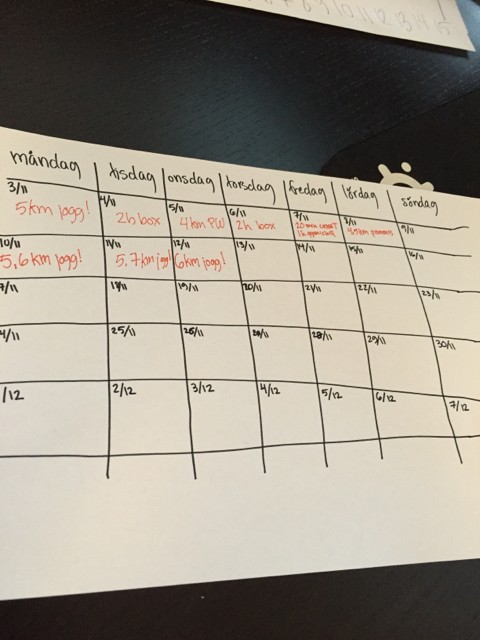 måndag tisdag onsdag torsdag fredag lördag söndag
3/11 4/11 5/11 6/11 7/11 8/11 9/11
5km jogg! 2h box 4km PW 2h box 20min 4,5km
1h
10/11 11/11 12/11 13/11 14/11 15/11 16/11
5,6km jogg! 5,7km jogg! 6km jogg!
7/11 18/11 19/11 20/11 21/11 22/11 23/11
4/11 25/11 26/11 28/11 29/11 30/11
/12 2/12 3/12 4/12 5/12 6/12 7/12